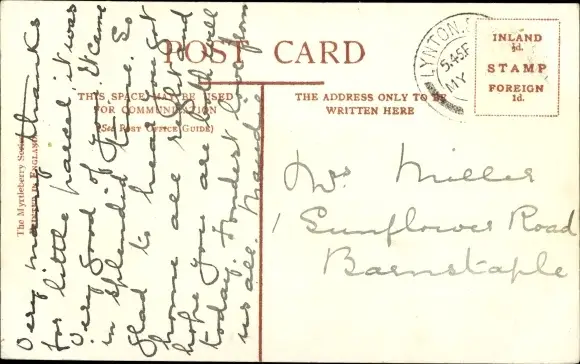 POST CARD
THIS SPACE MAY BE USED
FOR COMMUNICATION
(See Post Office Guide)
THE ADDRESS ONLY TO BE
WRITTEN HERE
INLAND
½d.
STAMP
FOREIGN
1d.
LYNTON
5.45P
MY
The Myrtleberry Series
PRINTED IN ENGLAND
Very many thanks
for little parcel, it was
very good of you. It came
in splendid time. So
glad to hear you got
home all right and
hope you are both well
today. Fondest love from
us all. Maude
Mrs Miller
1 Sunflower Road
Barnstaple